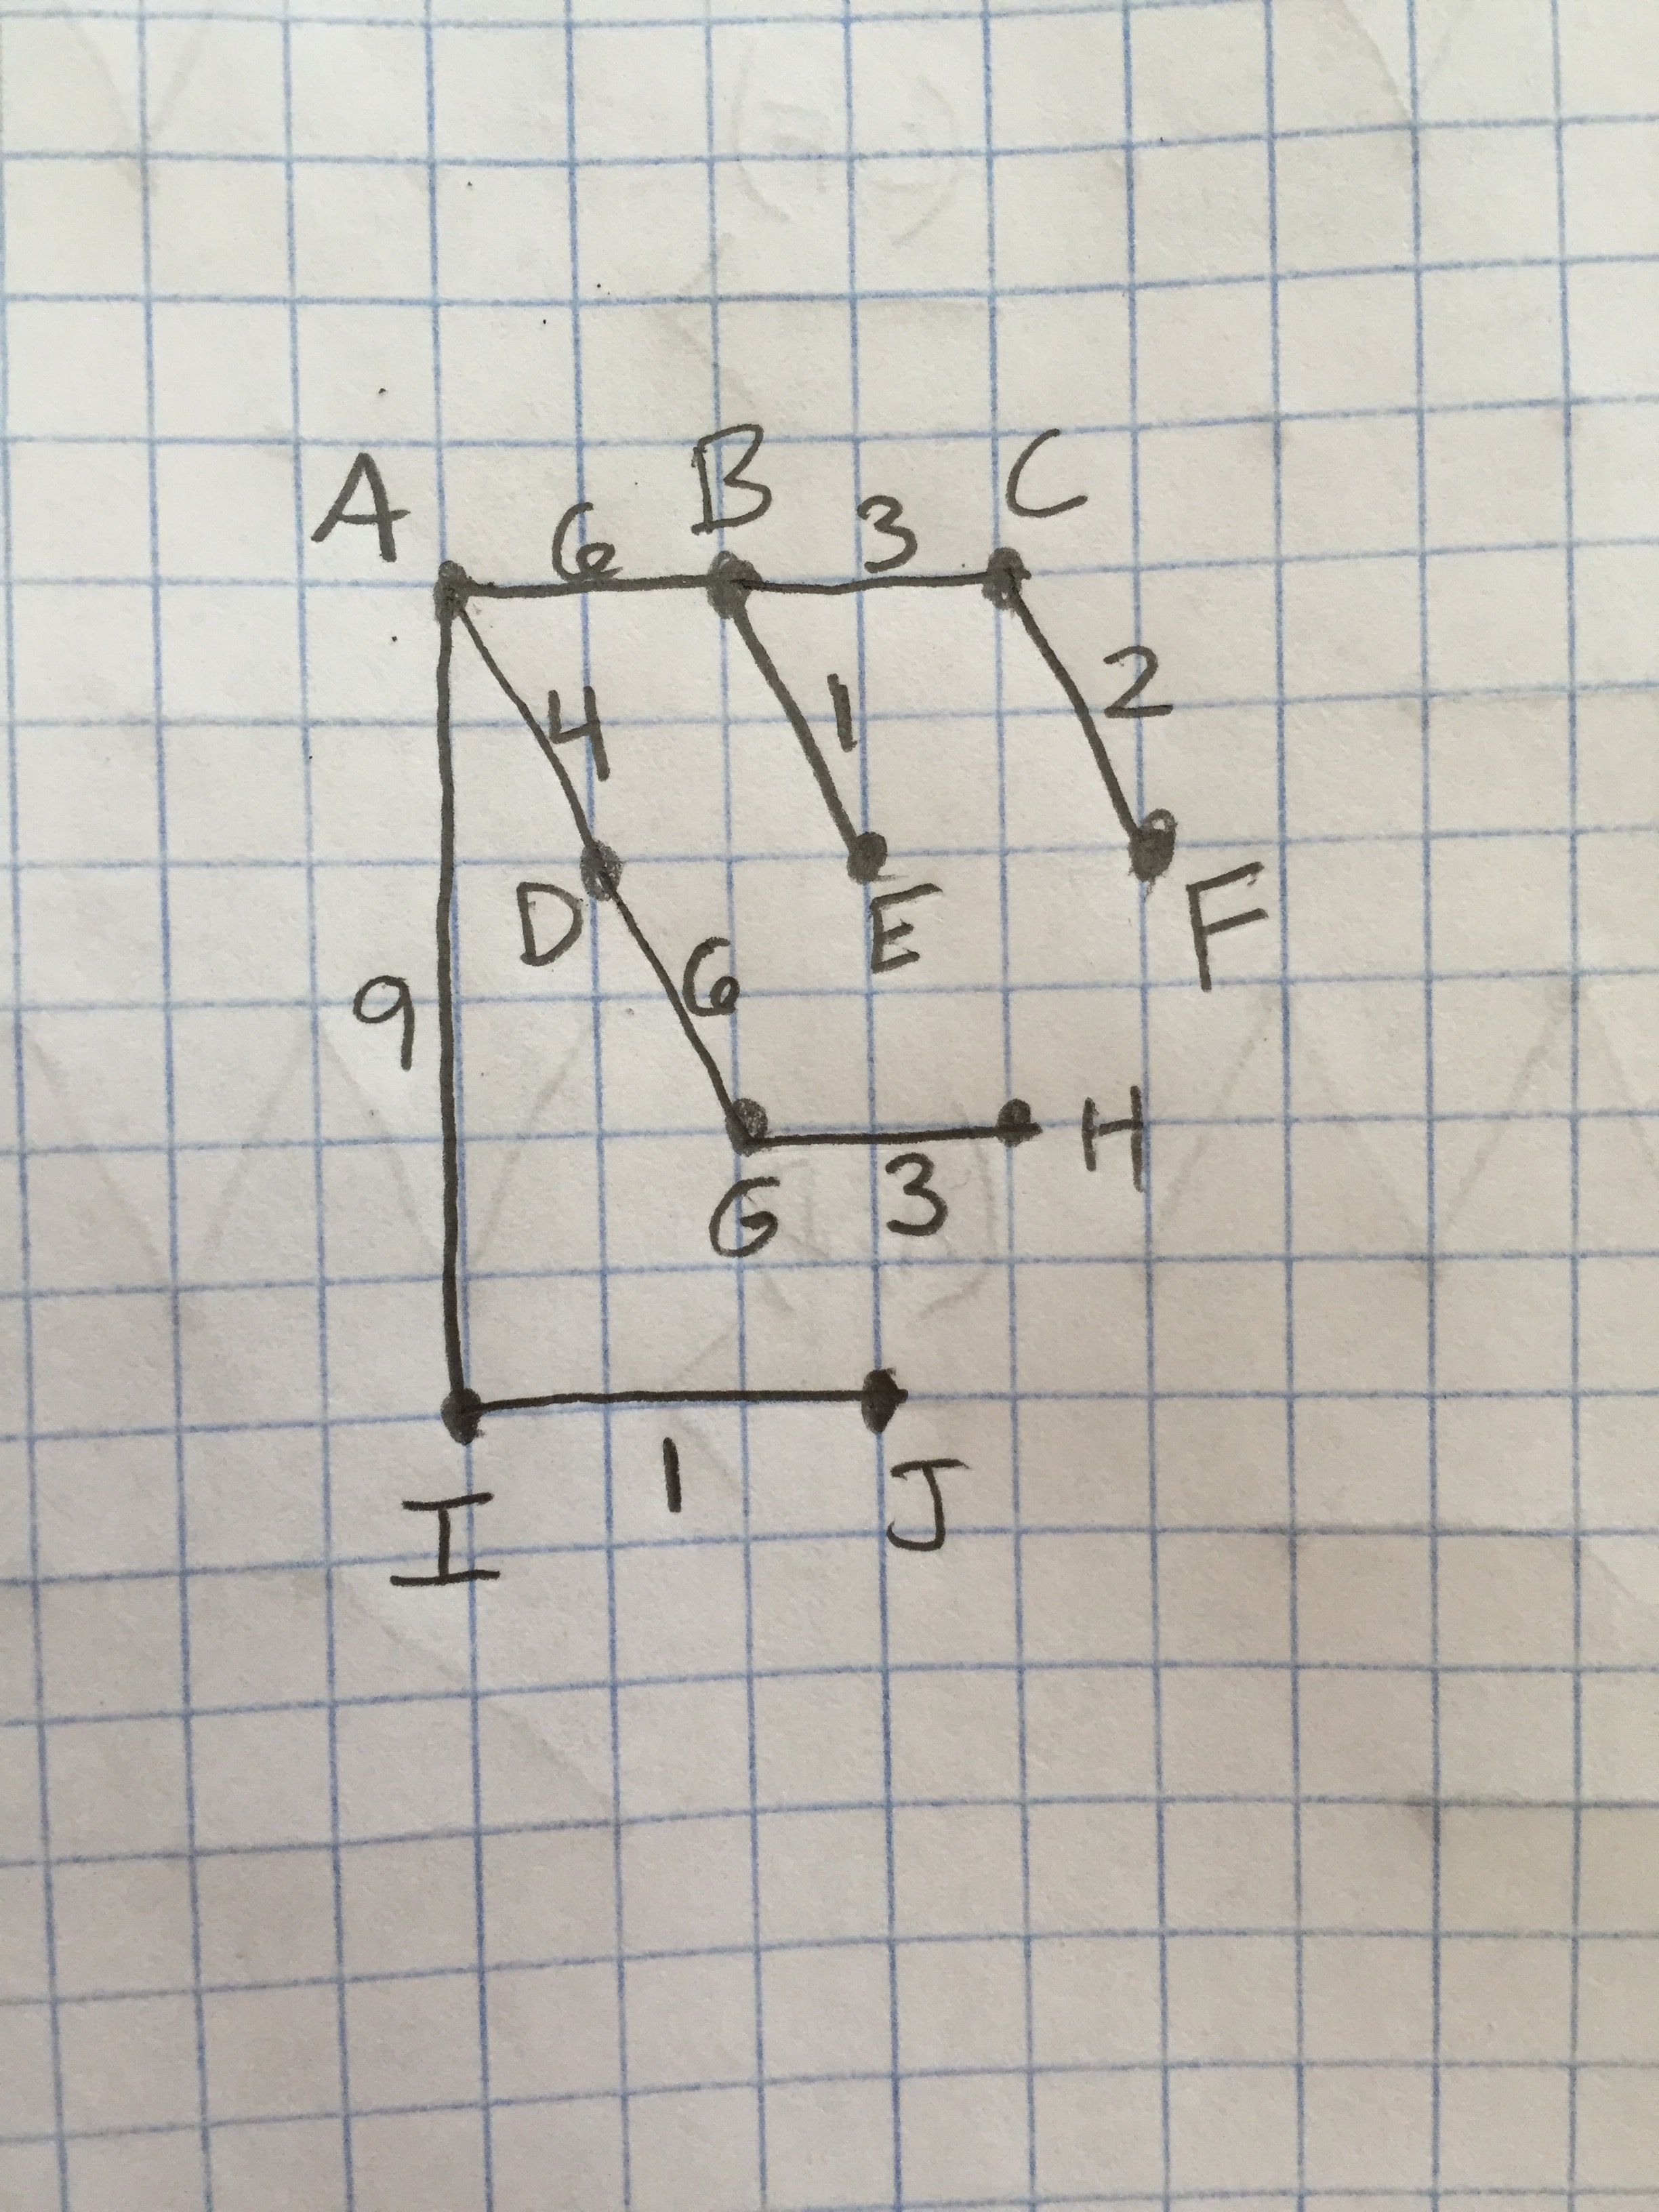 A 6 B 3 C
4 1 2
D E F
9 6
H
G 3
1
I J